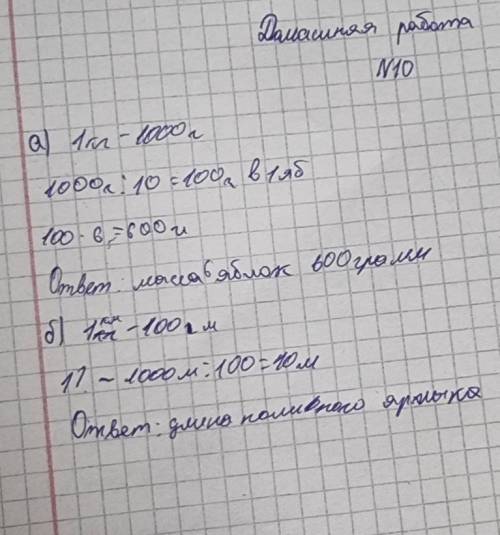 Домашняя работа
N10
а) 1кг - 1000г
1000г : 10 = 100г в 1яб
100 · 6 = 600г
Ответ: масса 6 яблок 600грамм
б) 1км - 100 м
1) - 1000м : 100 = 10м
Ответ: длина поливного